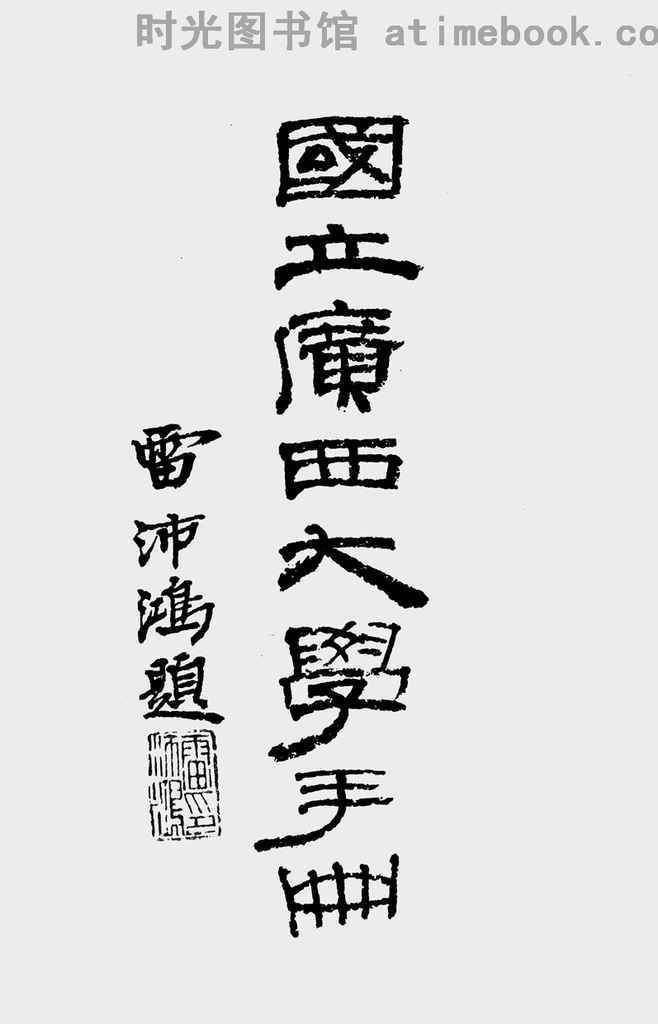 时光图书馆 atimebook.co
國立廣西大學手冊
雷沛鴻題